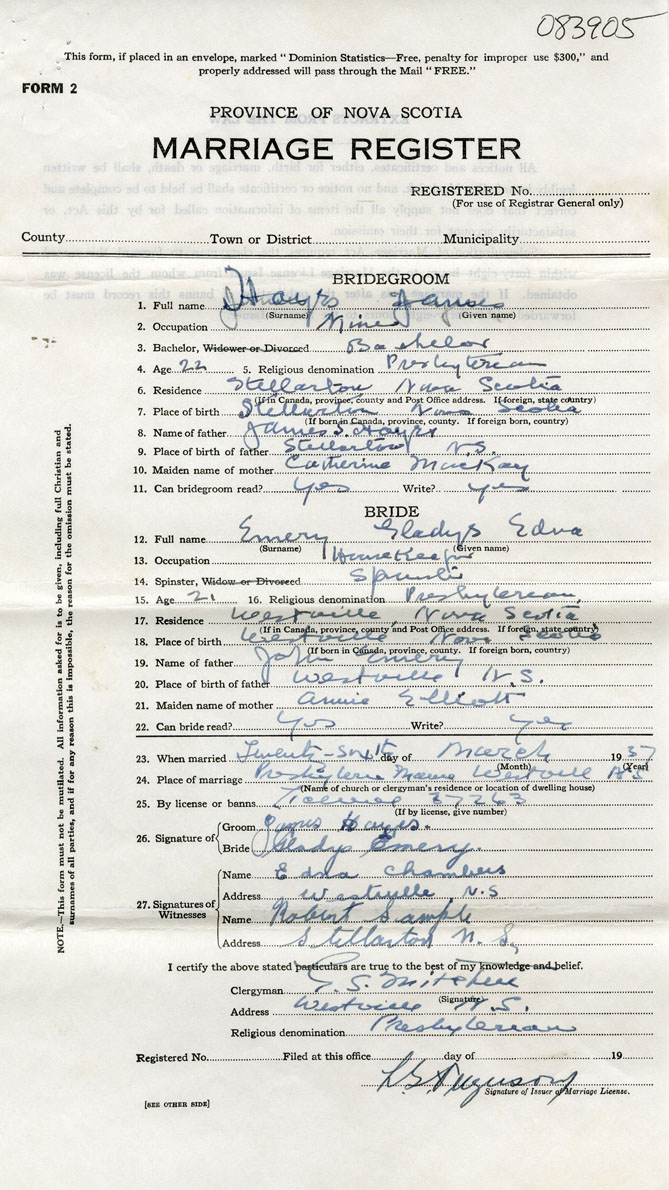 083905
This form, if placed in an envelope, marked "Dominion Statistics—Free, penalty for improper use $300," and
properly addressed will pass through the Mail "FREE."
FORM 2
PROVINCE OF NOVA SCOTIA
MARRIAGE REGISTER
REGISTERED No.
(For use of Registrar General only)
County Town or District Municipality
BRIDEGROOM
1. Full name Hayes James
(Surname) (Given name)
2. Occupation Miner
3. Bachelor, Widower or Divorced Bachelor
4. Age 22 5. Religious denomination Presbyterian
6. Residence Stellarton Nova Scotia
(If in Canada, province, county and Post Office address. If foreign, state country)
7. Place of birth Stellarton Nova Scotia
(If born in Canada, province, county. If foreign born, country)
8. Name of father James S. Hayes
9. Place of birth of father Stellarton N.S.
10. Maiden name of mother Catherine MacKay
11. Can bridegroom read? yes Write? yes
BRIDE
12. Full name Emery Gladys Edna
(Surname) (Given name)
13. Occupation HouseKeeper
14. Spinster, Widow or Divorced Spinster
15. Age 21 16. Religious denomination Presbyterian
17. Residence Westville Nova Scotia
(If in Canada, province, county and Post Office address. If foreign, state country)
18. Place of birth Westville Nova Scotia
(If born in Canada, province, county. If foreign born, country)
19. Name of father John Emery
20. Place of birth of father Westville N.S.
21. Maiden name of mother Annie Elliott
22. Can bride read? Yes Write? yes
23. When married Twenty-Sixth day of March 1937
(Month) (Year)
24. Place of marriage Presbyterian Manse Westville N.S.
(Name of church or clergyman's residence or location of dwelling house)
25. By license or banns License 37263
(If by license, give number)
26. Signature of
Groom James Hayes.
Bride Gladys Emery.
27. Signatures of Witnesses
Name Edna Chambers
Address Westville, N.S
Name Robert Sample
Address Stellarton N. S,
I certify the above stated particulars are true to the best of my knowledge and belief.
Clergyman G. S. Mitchell
(Signature)
Address Westville N.S.
Religious denomination Presbyterian
Registered No. Filed at this office day of 19
Ferguson
Signature of Issuer of Marriage License.
[SEE OTHER SIDE]
NOTE.—This form must not be mutilated. All information asked for is to be given, including full Christian and
surnames of all parties, and if for any reason this is impossible, the reason for the omission must be stated.